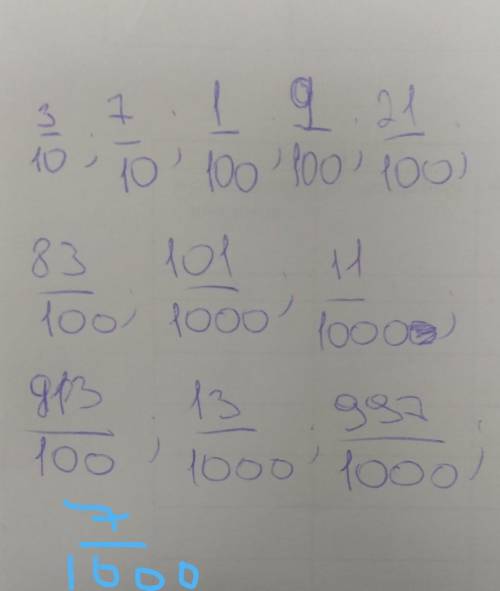 3/10; 7/10; 1/100; 9/100; 21/100;
83/100; 101/1000; 11/1000;
913/100; 13/1000; 997/1000;
7/1000